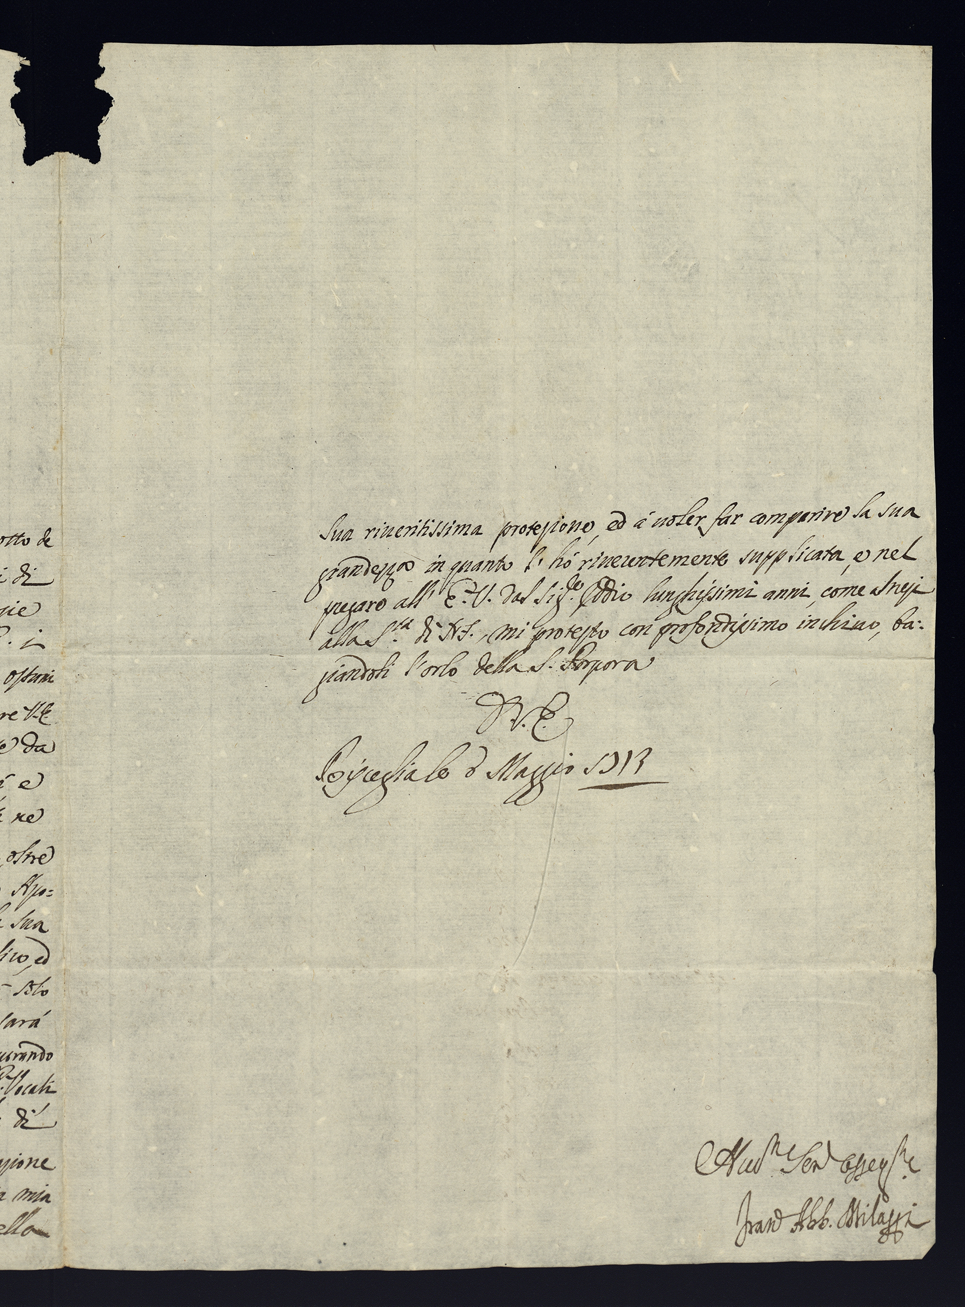 otto de
i di
gie
. in
ostuni
re V.E.
e da
i e
re
oltre
Apo=
sua
ed
solo
sarà
urando
Vocali
di
zione
mia
ella
sua riveritissima protezione, ed à voler far comparire la sua
grandezza in quanto l'hò riverentemente supplicata, e nel
pregare all'E. V. dal Sig.re Iddio lunghissimi anni, come
alla S.ta di N. S., mi protesto con profondissimo inchino, ba=
ciandoli l'orlo della S. Porpora
D. V. E.
Bisceglia le 8 Maggio 1713
Hum.mo Ser.e osseq.mo
Fran.o Abb. Milazzi